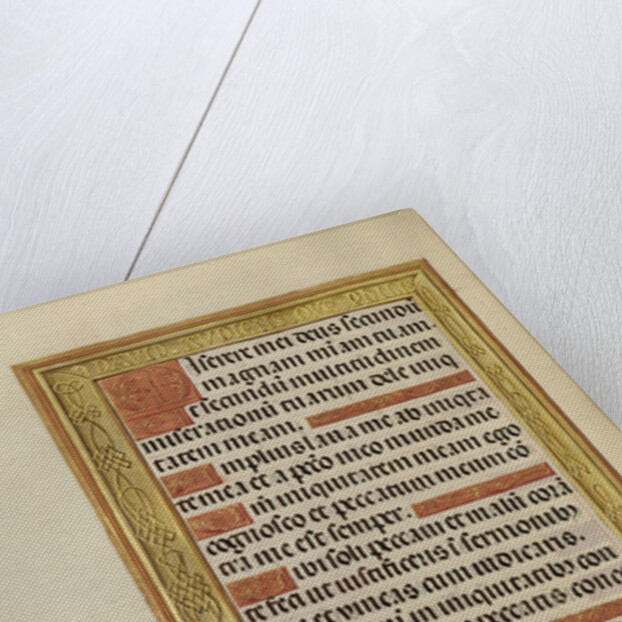 Miserere mei deus secundū
magnam miam tuam.
Et secundū multitudinem
miserationū tuarum dele iniq
tatem meam.
Amplius laua me ab iniqita
te mea et a pctō meo munda me
Qm iniquitatem meam ego
cognosco et peccatum meum cō
tra me est semper.
Tibi soli peccaui et malū corā
te feci ut iustificeris ī sermonibꝰ
et vincas cum iudicaris.
in iniquitatibꝰ con
peccatis conc